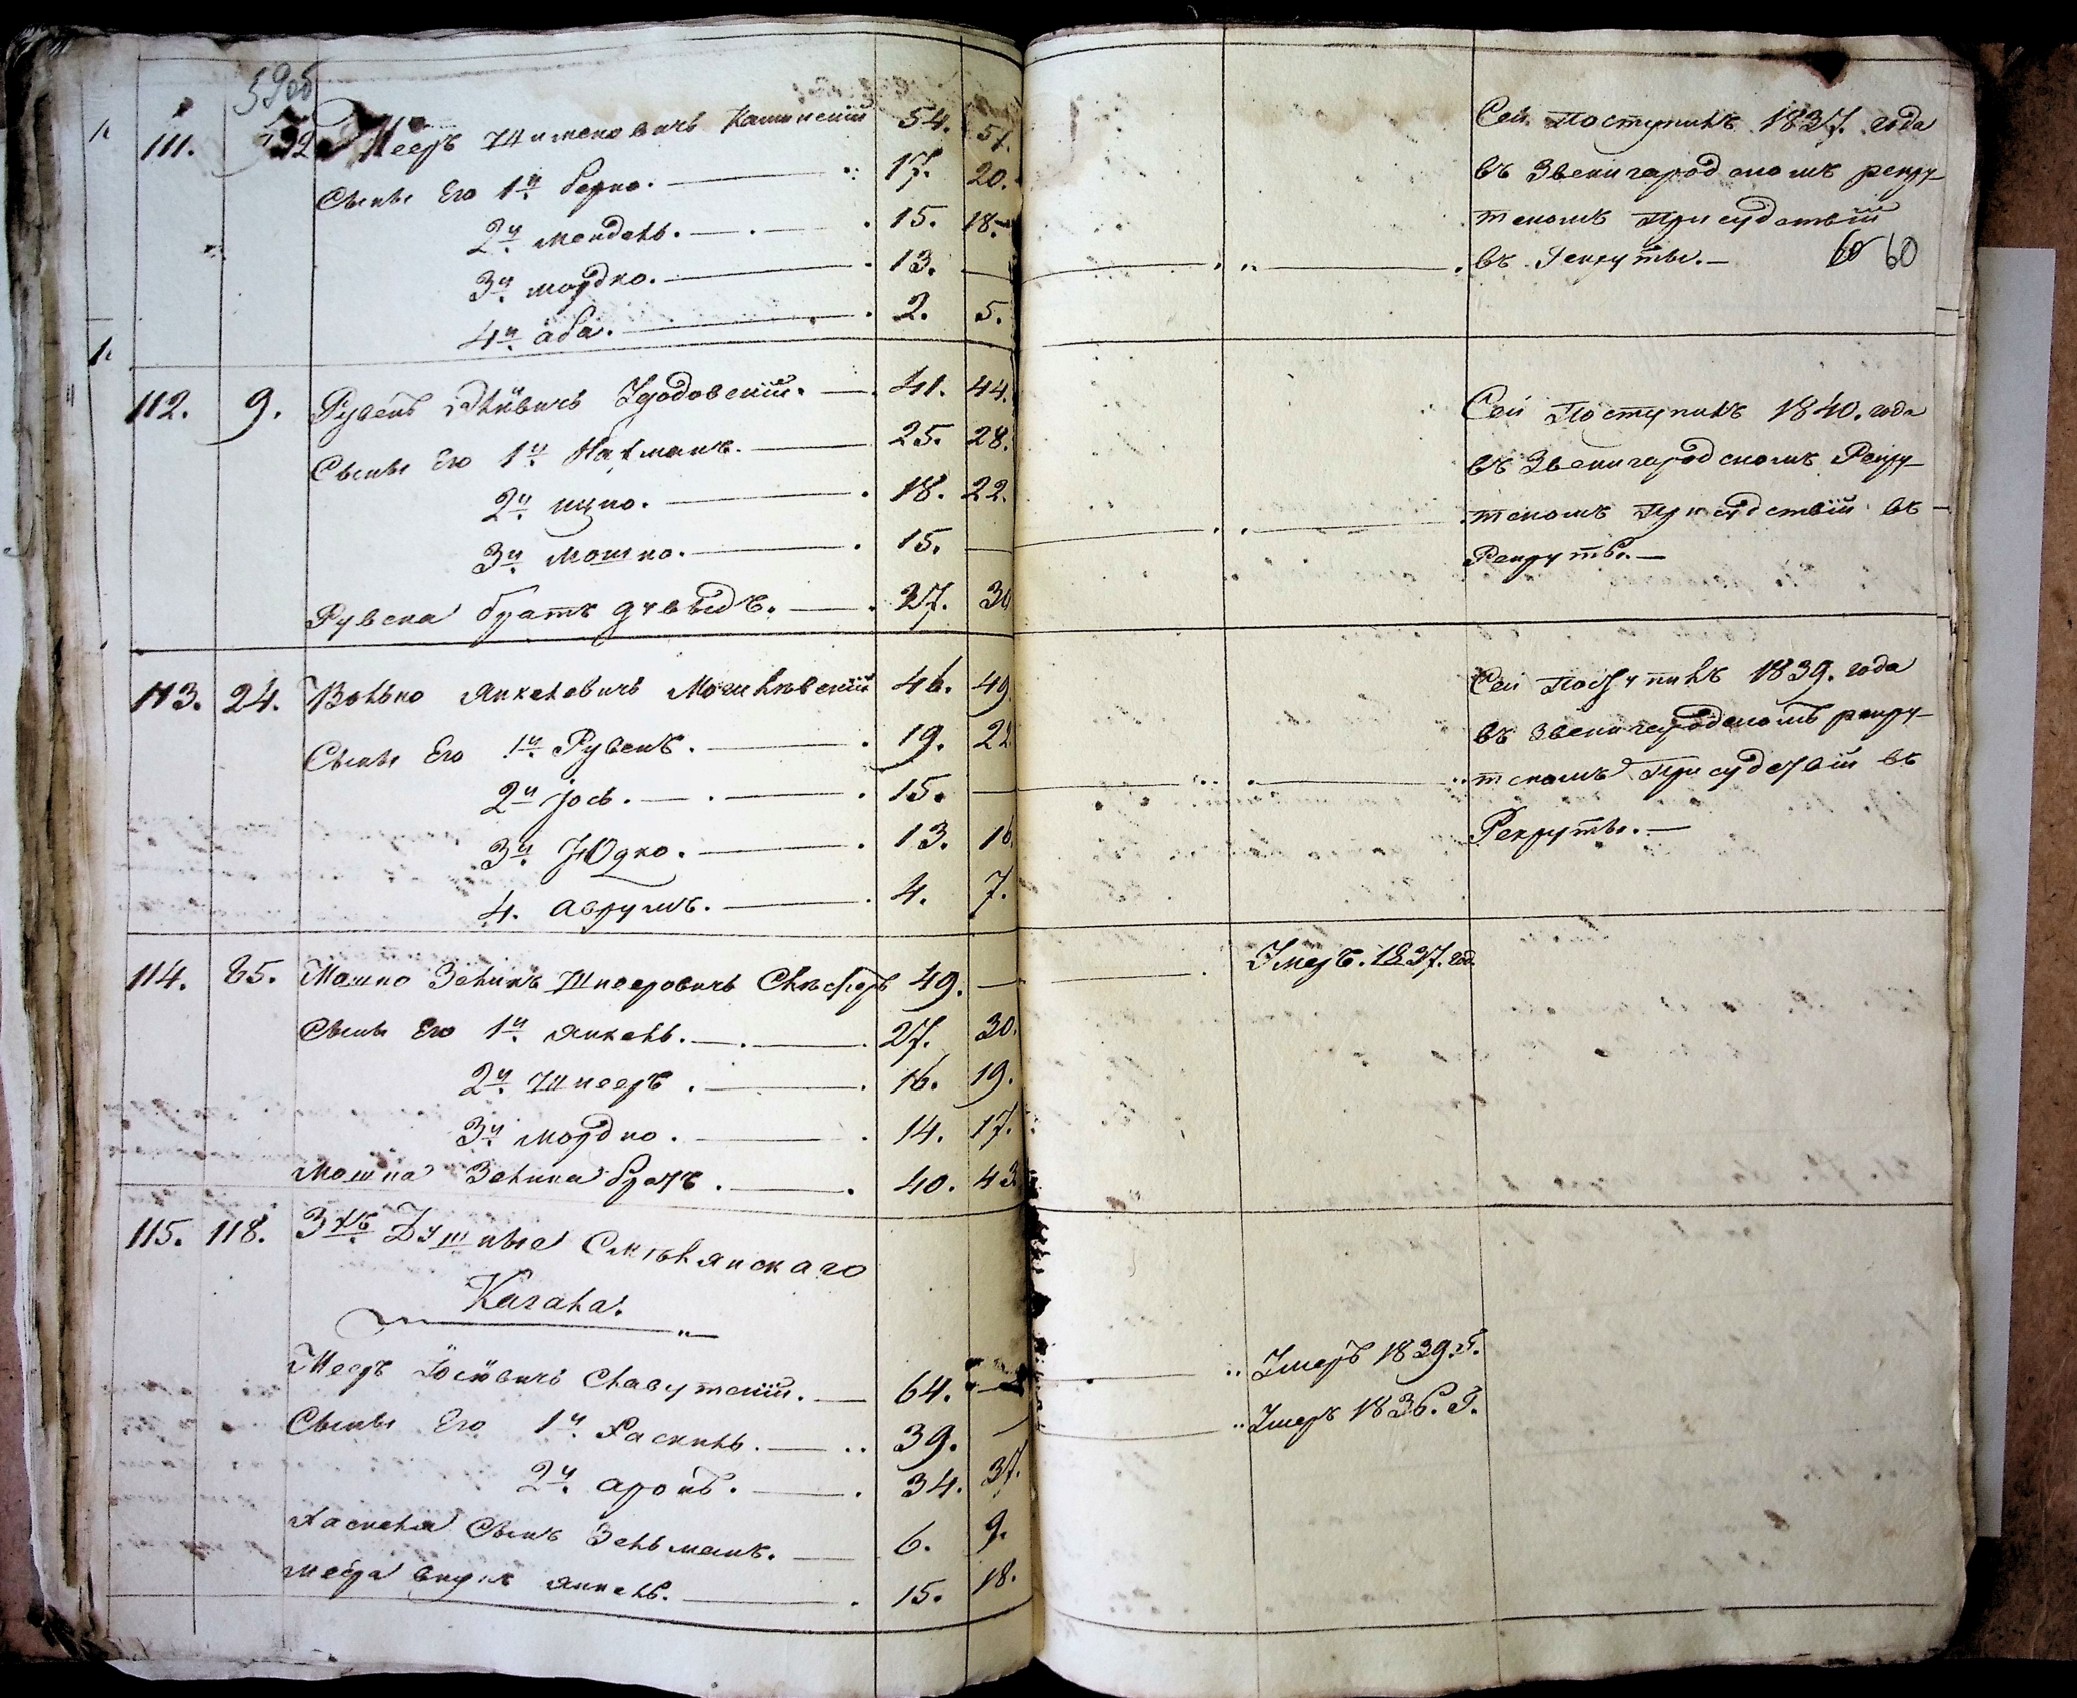 59об
111. Меер Шимонович Каминский 54. 57.
Сыны Его 1й Берко. 17. 20.
2й Мендель. 15. 18.
3й Мордко. 13. —
4й Аба. 2. 5.
112. 9. Рувенъ Лейбвичъ Бродовский. 41. 44.
Сыны Его 1й Нахманъ. 25. 28.
2й Ицко. 18. 22.
3й Мошко. 15. —
Рувена братъ Дувыдъ. 27. 30
113. 24. Волько Янкелевичъ Могилевский 46. 49.
Сыны Его 1й Рувенъ. 19. 22
2й Іось. 15. —
3й Юдко. 13. 16.
4. Аврумъ. 4. 7.
114. 85. Мошко Зеликъ Шнееровичъ 49. —
Сыны Его 1й Янкель. 27. 30.
2й Шнееръ. 16. 19.
3й Мордко. 14. 17.
Мошка Зелика братъ. 40. 43
115. 118. 3хъ Душные Смѣлянскаго
Кагала.
Мееръ Іосіовичъ Славутский. 64. —
Сыны Его 1й Хаскиль. 39. —
2й Аронъ. 34. 37.
Хаскеля Сынъ Зельманъ. 6. 9.
Меера внукъ Янкель. 15. 18.
Сей Поступилъ 1837. года
въ Звенигородскомъ рекру-
тскомъ Присудствіи
въ Рекруты. — 60 60
Сей Поступилъ 1840. года
въ Звенигородскомъ Рекру-
тскомъ Присудствіи въ
Рекруты. —
Сей Поступилъ 1839. года
въ Звенигородскомъ рекру-
тскомъ Присудствіи въ
Рекруты. —
Умеръ. 1837. год.
Умеръ 1839. г.
Умеръ 1836. г.